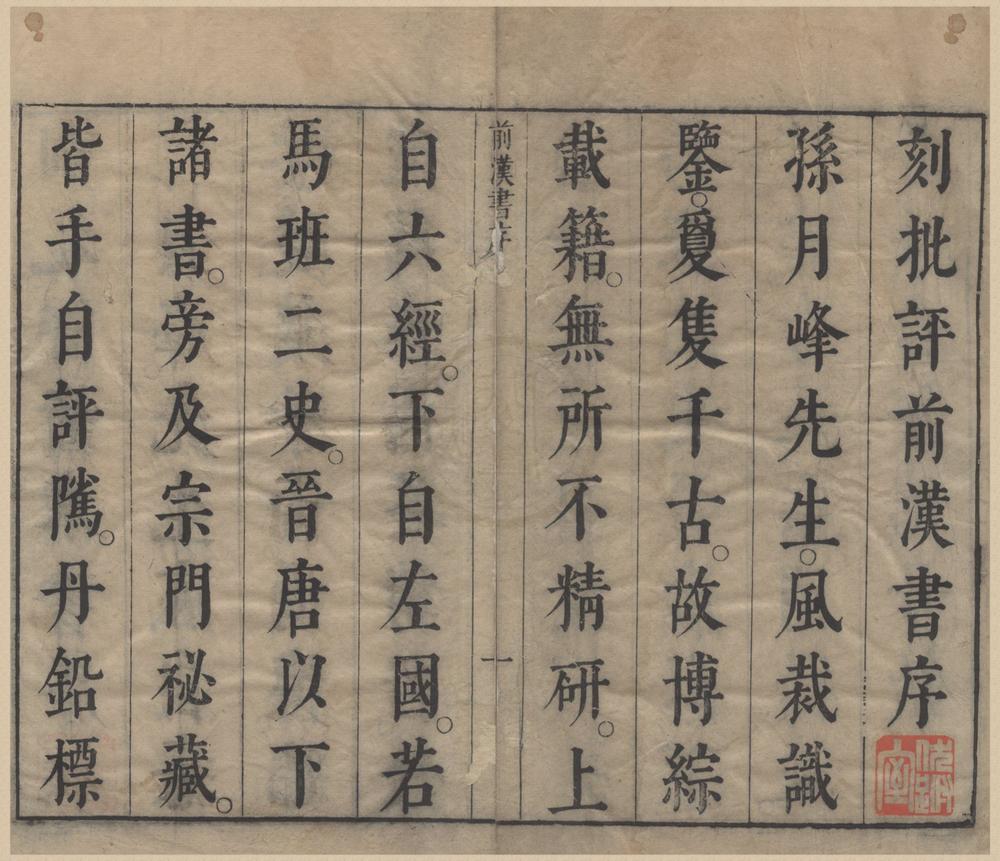 刻批評前漢書序
孫月峰先生。風裁識
鑒。敻隻千古。故博綜
載籍。無所不精研。上
前漢書序
一
自六經。下自左國。若
馬班二史。晉唐以下
諸書。旁及宗門祕藏。
皆手自評隲。丹鉛標